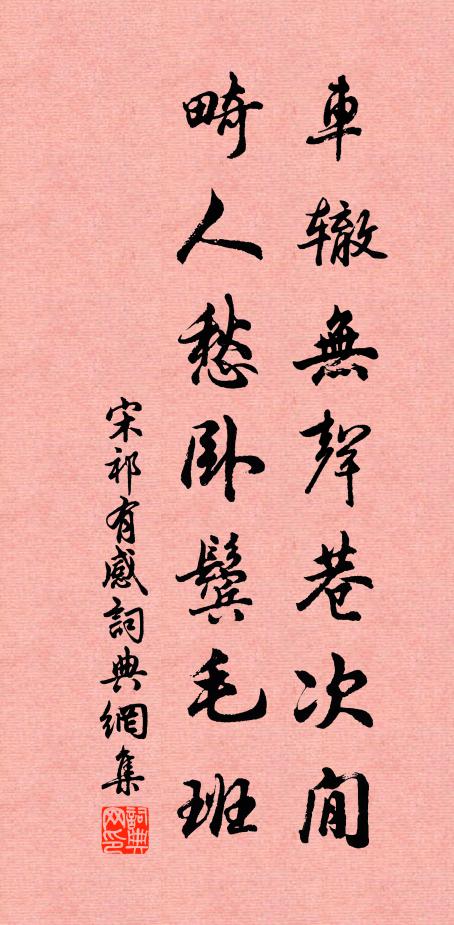 車轍無聲巷次閒
畸人愁卧鬢毛班
宋祁有感詞典網集
詞典网印